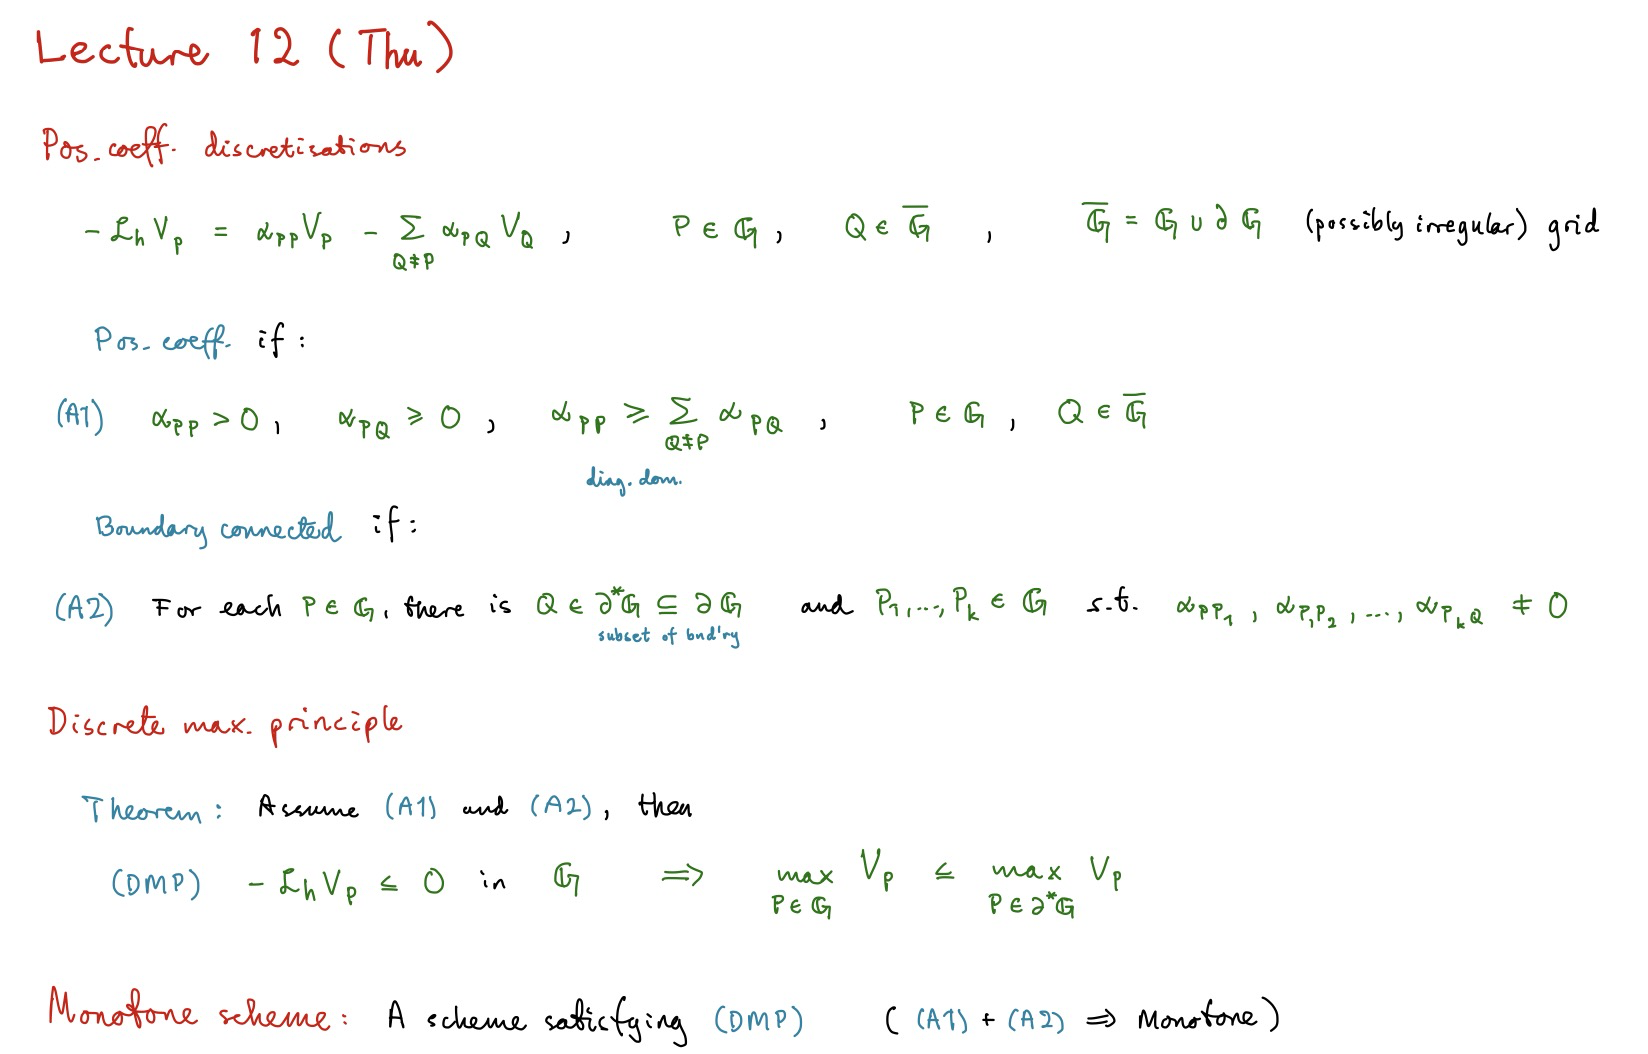 Lecture 12 (Thu)
Pos. coeff. discretisations
-ℒ_h V_P = α_PP V_P - Σ_{Q≠P} α_PQ V_Q , P ∈ 𝔾 , Q ∈ \overline{𝔾} , \overline{𝔾} = 𝔾 ∪ ∂𝔾 (possibly irregular) grid
Pos. coeff. if :
(A1) α_PP > 0 , α_PQ ≥ 0 , α_PP ≥ Σ_{Q≠P} α_PQ , P ∈ 𝔾 , Q ∈ \overline{𝔾}
diag. dom.
Boundary connected if :
(A2) For each P ∈ 𝔾, there is Q ∈ ∂*𝔾 ⊆ ∂𝔾 and P_1, ..., P_k ∈ 𝔾 s.t. α_{PP_1} , α_{P_1P_2} , ..., α_{P_kQ} ≠ 0
subset of bnd'ry
Discrete max. principle
Theorem : Assume (A1) and (A2), then
(DMP) -ℒ_h V_P ≤ 0 in 𝔾 ⟹ max_{P ∈ 𝔾} V_P ≤ max_{P ∈ ∂*𝔾} V_P
Monotone scheme : A scheme satisfying (DMP) ( (A1) + (A2) ⟹ Monotone )